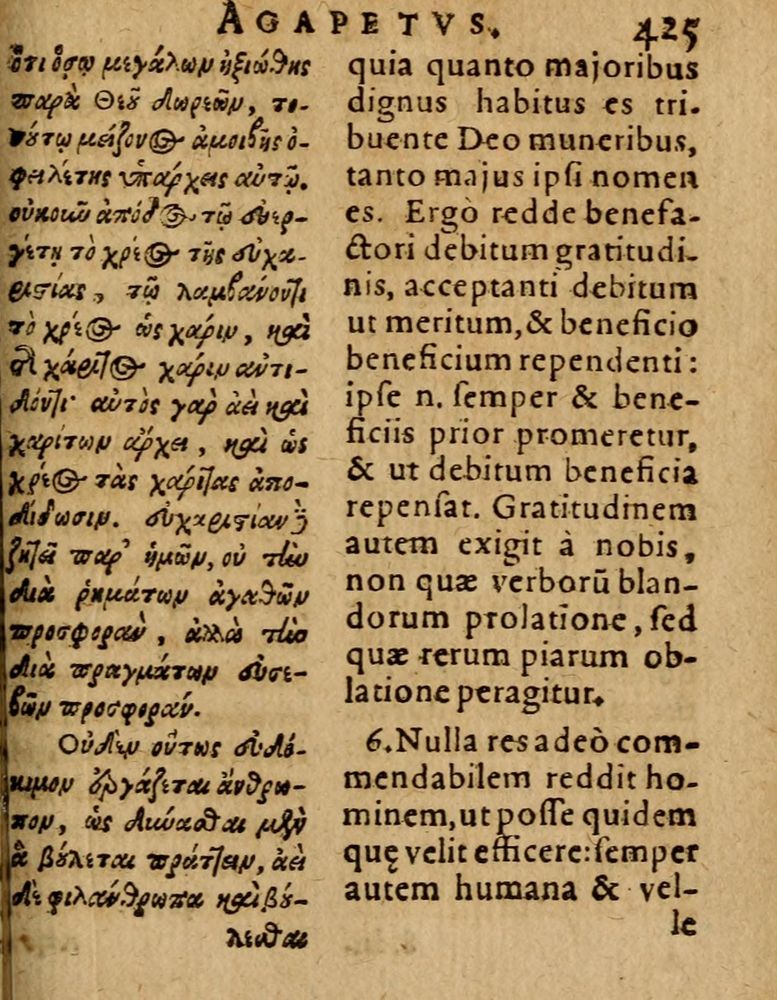 AGAPETVS. 425
ὅτι ὅσῳ μεγάλων ἠξιώθης
παρὰ Θεοῦ δωρεῶν, το-
σύτῳ μείζονος ἀμοιβῆς ὀ-
φειλέτης ὑπάρχεις αὐτῷ.
οὐκοῦν ἀπόδος τῷ εὐερ-
γέτῃ τὸ χρέος τῆς εὐχα-
ριστίας, τῷ λαμβάνοντι
τὸ χρέος ὡς χάριν, καὶ
χάριτος χάριν ἀντι-
δόντι· αὐτὸς γὰρ ἀεὶ καὶ
χαρίτων ἄρχει, καὶ ὡς
χρέος τὰς χάριτας ἀπο-
δίδωσιν. εὐχαριστίαν δὲ
ζητεῖ παρ’ ἡμῶν, οὐ τὴν
διὰ ῥημάτων ἀγαθῶν
προσφορὰν, ἀλλὰ τὴν
διὰ πραγμάτων εὐσε-
βῶν προσφοράν.
Οὐδὲν οὕτως εὐδό-
κιμον ἐργάζεται ἄνθρω-
πον, ὡς δύνασθαι μὲν
ἃ βύλεται πράττειν, ἀεὶ
δὲ φιλάνθρωπα καὶ βύ-
λεσθαι
quia quanto majoribus
dignus habitus es tri-
buente Deo muneribus,
tanto majus ipſi nomen
es. Ergò redde benefa-
ctori debitum gratitudi-
nis, acceptanti debitum
ut meritum, & beneficio
beneficium rependenti:
ipſe n. ſemper & bene-
ficiis prior promeretur,
& ut debitum beneficia
repenſat. Gratitudinem
autem exigit à nobis,
non quæ verborū blan-
dorum prolatione, ſed
quæ rerum piarum ob-
latione peragitur.
6. Nulla res adeò com-
mendabilem reddit ho-
minem, ut poſſe quidem
quę velit efficere: ſemper
autem humana & vel-
le